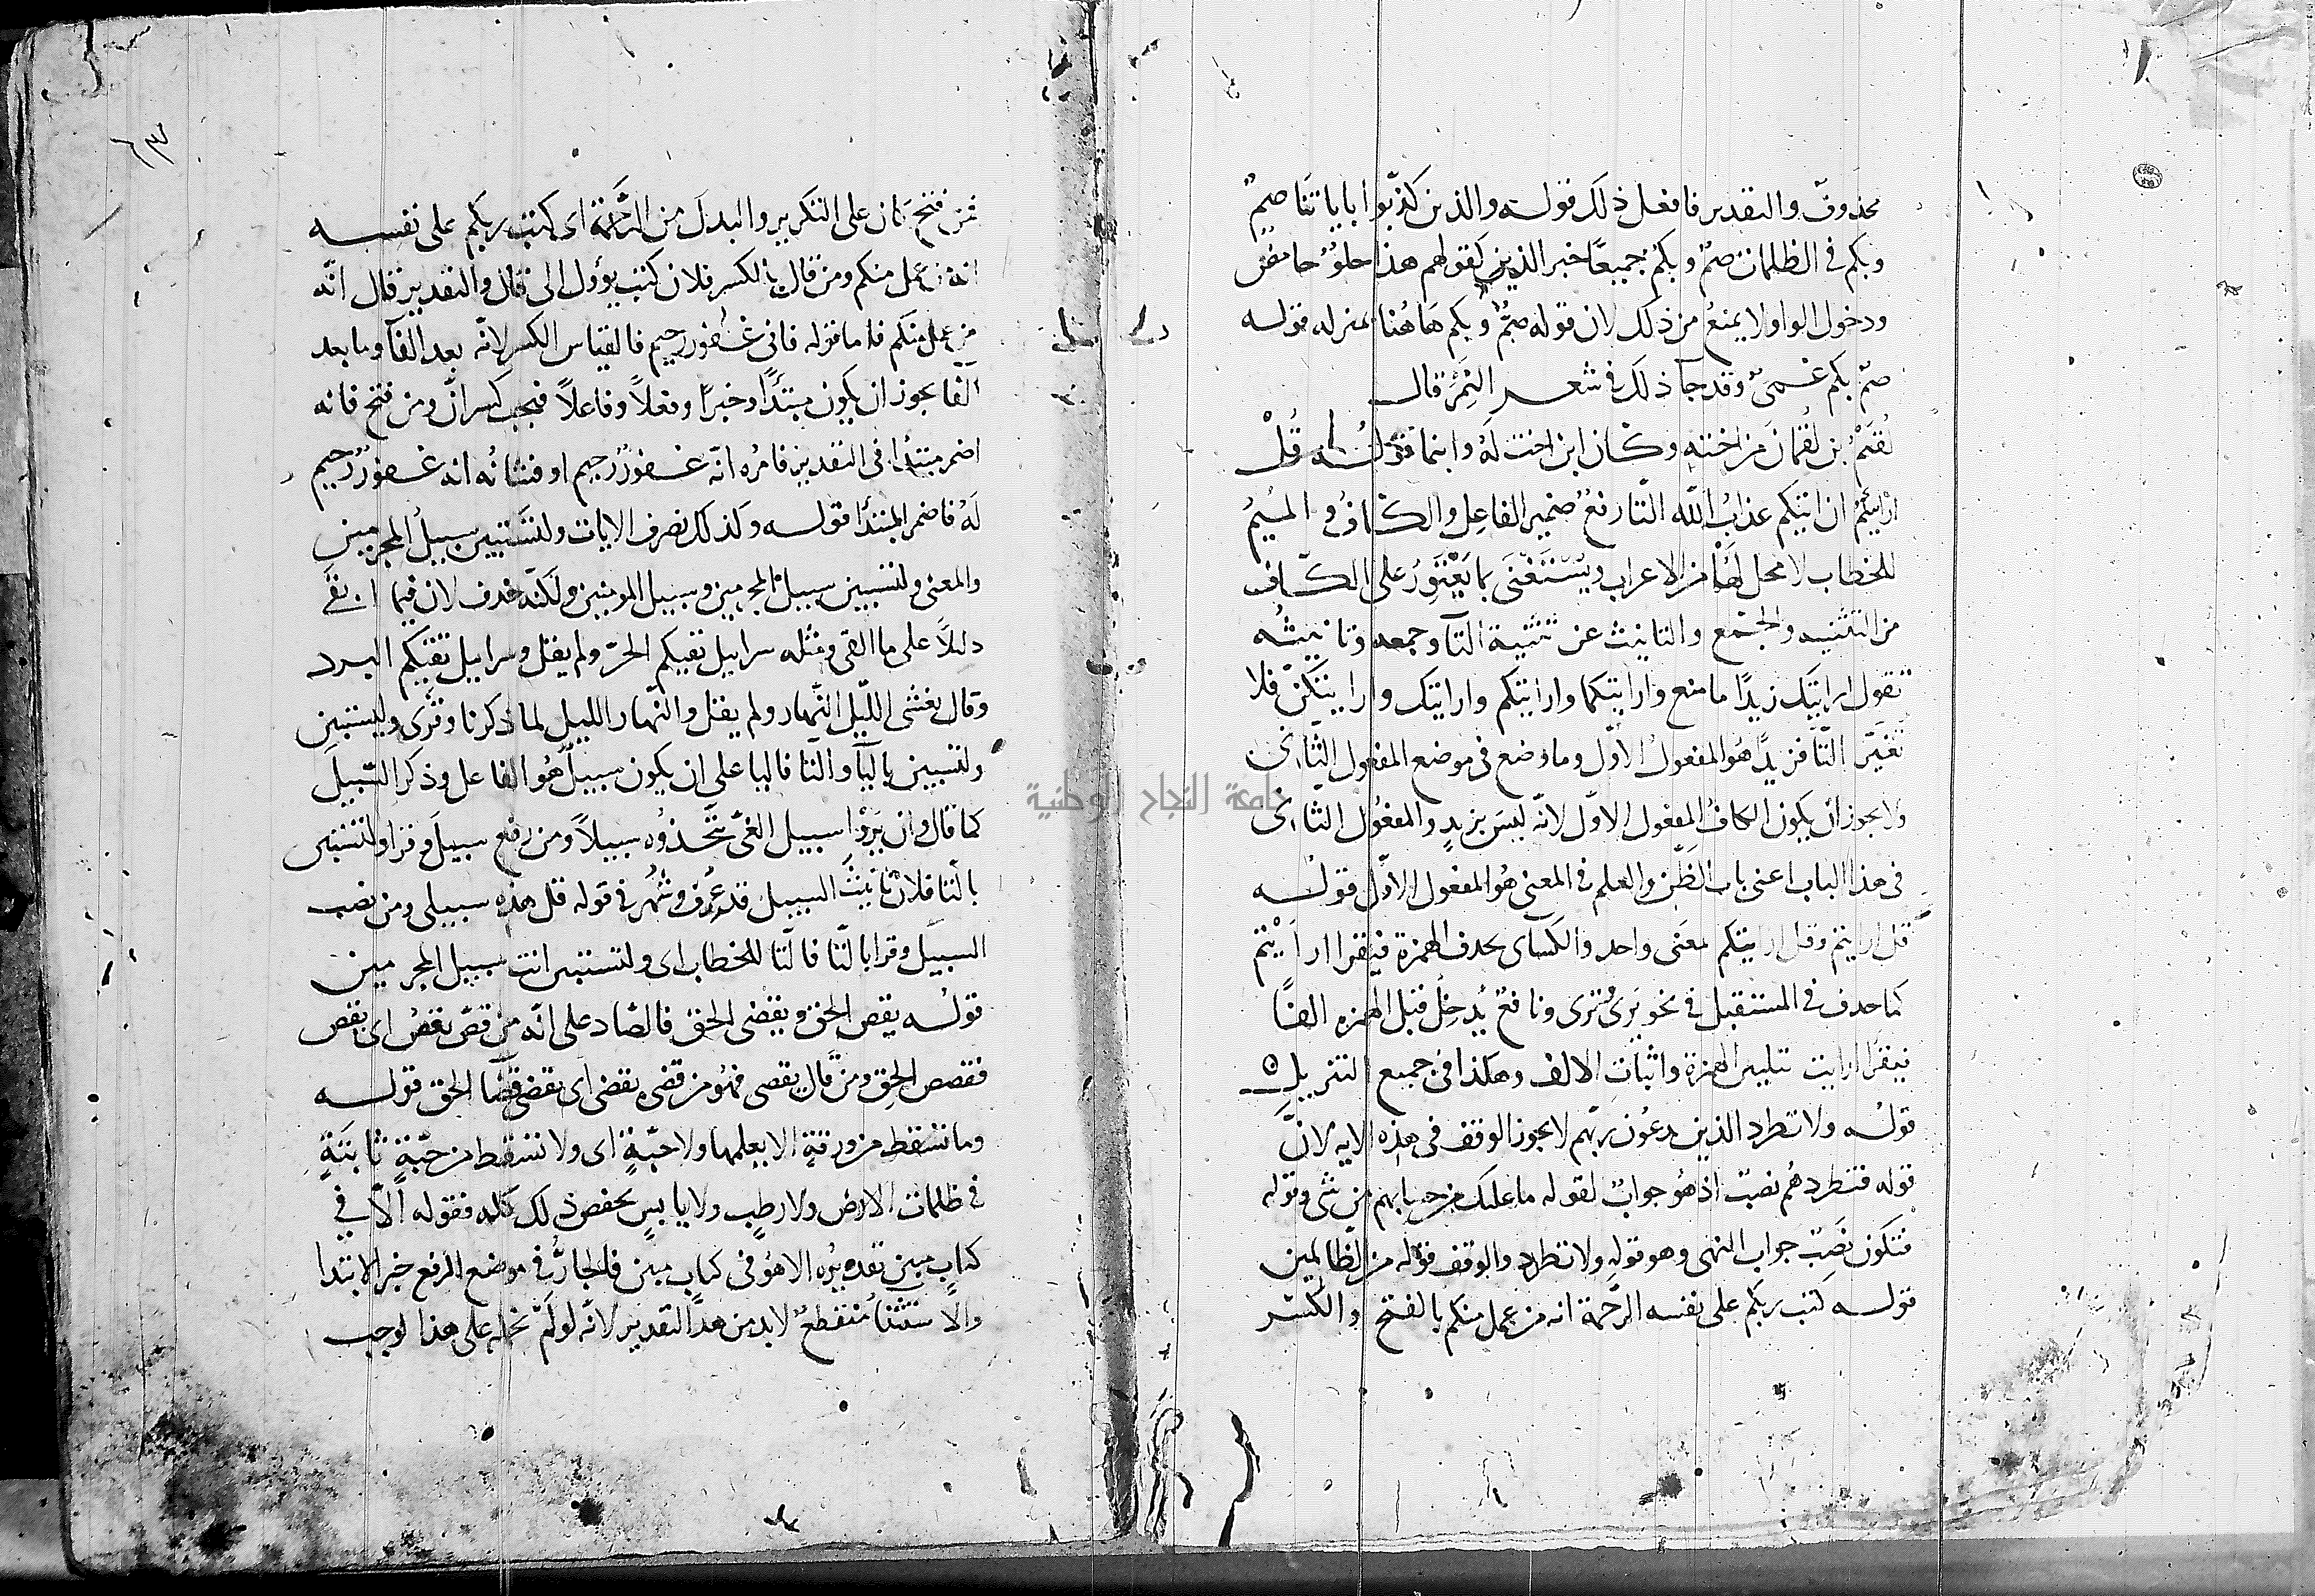 محذوف والتقدير فافعل ذلك قوله والذين كذبوا باياتنا صم
وبكم في الظلمات صم وبكم جميعًا خبر الذين كقولهم هذا حلو حامض
ودخول الواو لا يمنع من ذلك لان قوله صم وبكم هاهنا بمنزله قوله
صم بكم عمى وقد جآ ذلك في شعر النمر قال
لقيم بن لقمان من اخته وكان ابن اخت له وابنما قوله قل
ارايتكم ان اتيكم عذاب الله التا رفع ضمير الفاعل والكاف و الميم
للخطاب لا محل لها من الاعراب ويستغنى بما يعتور على الكاف
من التثنيه والجمع والتانيث عن تثنية التآ وجمعه وتانيثه
تقول ارايتك زيدًا ما صنع وارايتكما وارايتكم وارايتك وارايتكن فلا
تغير التا فزيدًا هو المفعول الاول وما وضع في موضع المفعول الثانى
ولا يجوز ان يكون الكاف المفعول الاول لانه ليس بزيد والمفعول الثانى
في هذا الباب اعنى باب الظن والعلم في المعنى هو المفعول الاول قوله
قل ارايتم وقل ارايتكم لمعنى واحد والكسآى بحذف الهمزة فيقرا اريتم
كما حذف في المستقبل في نحو يرى ترى ونافع يدخل قبل الهمزه الفًا
فيقرا ارايت تليين الهمزة واثبات الالف وهكذا في جميع التنزيل ه
قوله ولا تطرد الذين يدعون ربهم لا يجوز الوقف في هذه الايه لان
قوله فتطردهم نصب اذ هو جواب لقوله ما عليك من حسابهم من شى وقوله
فتكون نصب جواب النهى وهو قوله ولا تطرد والوقف قوله من الظالمين
قوله كتب ربكم على نفسه الرحمة انه من عمل منكم بالفتح والكسر
٦٣
فمن فتح كان على التكرير والبدل من الرحمة اى كتب ربكم على نفسه
انه من عمل منكم ومن قال بالكسر فلان كتب يؤول الى قال والتقدير قال انه
من عمل منكم فاما قوله فانى غفور رحيم فالقياس الكسر لانه بعد الفآ وما بعد
الفا يجوز ان يكون مبتدًا وخبرًا وفعلاً وفاعلاً فيجب كسر ان ومن فتح فانه
اضمر مبتدا في التقدير فامره انه غفور رحيم او فشانه انه غفور رحيم
له فاضمر المبتدا قوله وكذلك نصرف الايات ولتستبين سبيل المجرمين
والمعنى ولتستبين سبيل المجرمين وسبيل المومنين ولكنه حذف لان فيما ابقى
دليلاً على ما القى ومثله سرابيل تقيكم الحر ولم يقل وسرابيل تقيكم البرد
وقال يغشى الليل النهار ولم يقل والنهار الليل لما ذكرنا وقرى وليستبين
ولتستبين باليآ والتا فاليا على ان يكون سبيل هو الفاعل وذكر السبيل
كما قال وان يروا سبيل الغى يتخذوه سبيلاً ومن رفع سبيل وقرا ولتستبين
بالتا فلان تانيث السبيل قد عرف وشهر في قوله قل هذه سبيلى ومن نصب
السبيل وقرا بالتا فالتا للخطاب اى ولتستبين انت سبيل المجرمين
قوله يقص الحق ويقضى الحق فالصاد على انه من قص يقص اى يقص
فقصص الحق ومن قال يقضى فهو من قضى يقضى اى يقضى قضا الحق قوله
وما تسقط من ورقة الا يعلمها ولا حبة اى ولا تسقط من حبة ثابتة
في ظلمات الارض ولا رطب ولا يابس بخفض ذلك كله فقوله الا في
كتاب مبين تقديره الا هو في كتاب مبين فالجار في موضع الرفع خبر الابتدا
والاستثنا منقطع لابد من هذا التقدير لانه لو لم نحمله على هذا لوجب
جامعة النجاح الوطنية